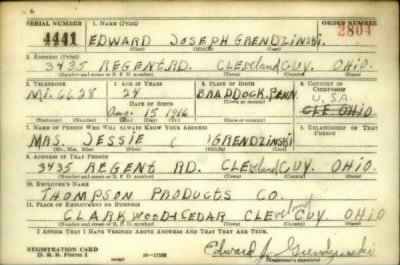 SERIAL NUMBER 1. NAME (Print) ORDER NUMBER
4441 EDWARD JOSEPH GRENDZINSKI. 2804
(First) (Middle) (Last)
2. ADDRESS (Print)
3435 REGENT RD. CLEVELAND CUY. OHIO.
(Number and street or R. F. D. number) (Town) (County) (State)
3. TELEPHONE 4. AGE IN YEARS 5. PLACE OF BIRTH 6. COUNTRY OF CITIZENSHIP
Mi. 6628 24 BRADDOCK, PENN. U.S.A.
DATE OF BIRTH
Aug. 15 1916 CLE. OHIO
7. NAME OF PERSON WHO WILL ALWAYS KNOW YOUR ADDRESS 8. RELATIONSHIP OF THAT PERSON
MRS. JESSIE ( ) GRENDZINSKI
(Mr., Mrs., Miss) (First) (Middle) (Last)
9. ADDRESS OF THAT PERSON
3435 REGENT RD. CLEVELAND CUY. OHIO
(Number and street or R. F. D. number) (Town) (County) (State)
10. EMPLOYER'S NAME
THOMPSON PRODUCTS CO.
11. PLACE OF EMPLOYMENT OR BUSINESS
CLARKWOOD & CEDAR CLEVELAND CUY. OHIO
(Number and street or R. F. D. number) (Town) (County) (State)
I AFFIRM THAT I HAVE VERIFIED ABOVE ANSWERS AND THAT THEY ARE TRUE.
REGISTRATION CARD
D. S. S. Form 1 16-17105
Edward J. Grendzinski
(Registrant's signature)